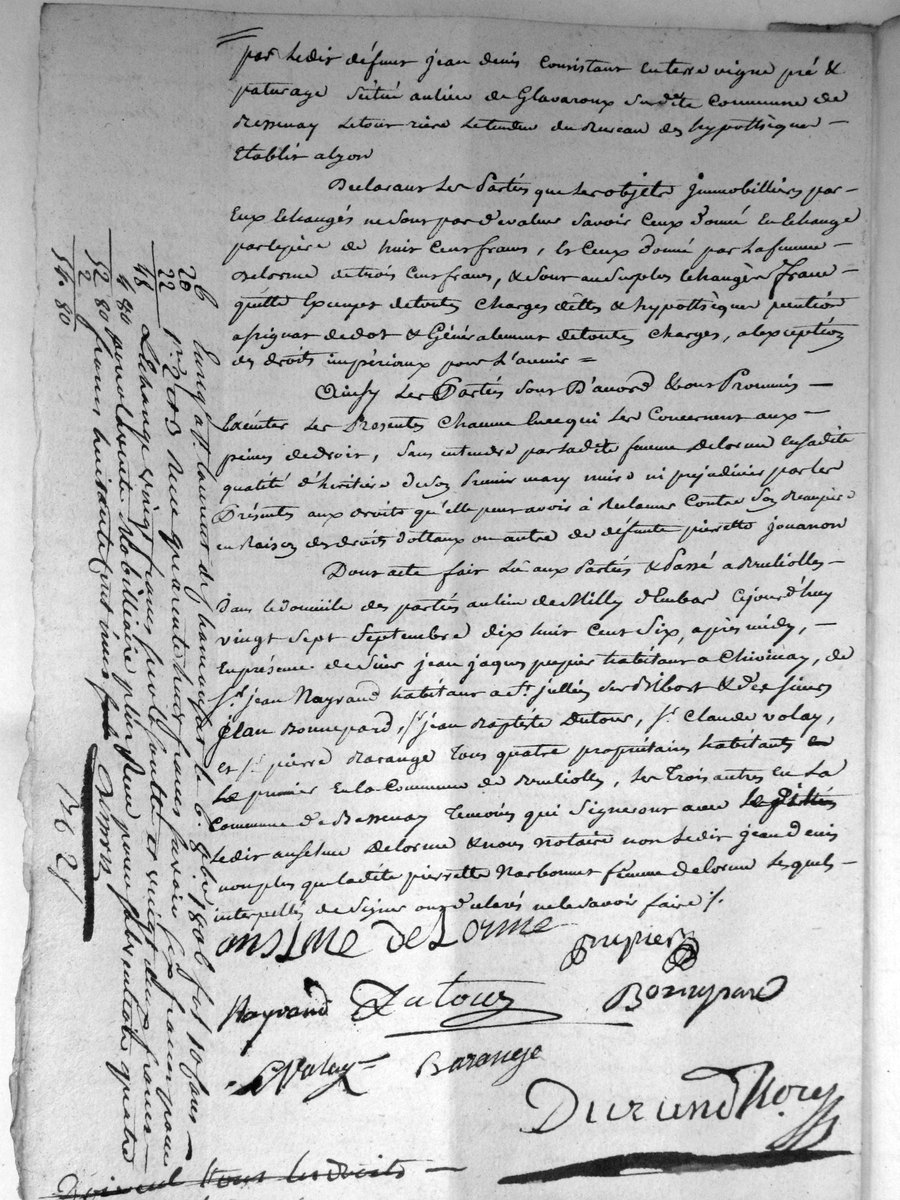 par ledit défunt jean denis Consistant enterre vigne pré &
paturage Situé aulieu de Glavaroux Surdite Commune de
Bessenay Letout rière Letendue du Bureau des hypottèques
Etablit alyon
Declarant Les Partiés que Les objets jmmobilliérs par
Eux Echangés ne Sont pas d'evalue Savoir Ceux donné En Echange
de huit Cent francs, Et Ceux donné par Lafemme
Delorme de trois Cent francs, & Sont au Surplus Echangés franc
quitte Exempt detoutes Charges dettes & hypottèque
assignat dedot & Généralement detoutes Charges, alexception
des droits impériaux pour L'avenir =
Ainsy Les Partiés Sont D'accord &ont Promis
Exécuter Les Presentes Chacune Encequi Les Concernent aux
peines dedroit, Sans entendre par Ladite femme Delorme Ensadite
qualité d'héritière deson Premier mary nuire ni préjudicier par les
Présentes aux droits qu'elle peut avoir à Reclamer Contre Son
en Raison des droits dottaux ou autre de défunte pierrette jouanon
Dont acte fait Lû aux Partiés & Passé a Bruliolles
Dans Ledomicile des partiés aulieu de Cejourd'huy
vingt Sept Septembre dix huit Cent Six, après midy,
Enprésence de Sieur jean jaques pupier habitant a Chivinay, de
Sr. jean Nayrand habitant a St. jullien Sur Bibost & des Sieurs
jean Bonnepard, Sr. jean Baptiste Dutour, Sr. Claude volay,
et Sr. pierre Barange tous quatre propriétaires habitants
Le premier En La Commune de Bruliolles, Les Trois autres En La
Commune de Bessenay Temoins qui Signeront avec
Ledit anselme Delorme & nous notaire non Ledit jean denis
nonplus que Ladite pierrette Narbonnet femme Delorme Lesquels
interpellés de Signer ont déclarés ne le Savoir faire /.
ansLme de Lorme
pupier
Nayrand Dutour Bonnepard
C Volay Barange
Durand Nore
Doivent tous les droits
Enreg. a St. Laurent de Chamousset le 6. 8bre 1806 fol 10
Recu quarante huit francs Savoir Six francs pour
L'Echange vingt francs et vingt deux francs
quatre
francs huitante Centimes
26
20
22
48
4 80
52 80
2
54 80